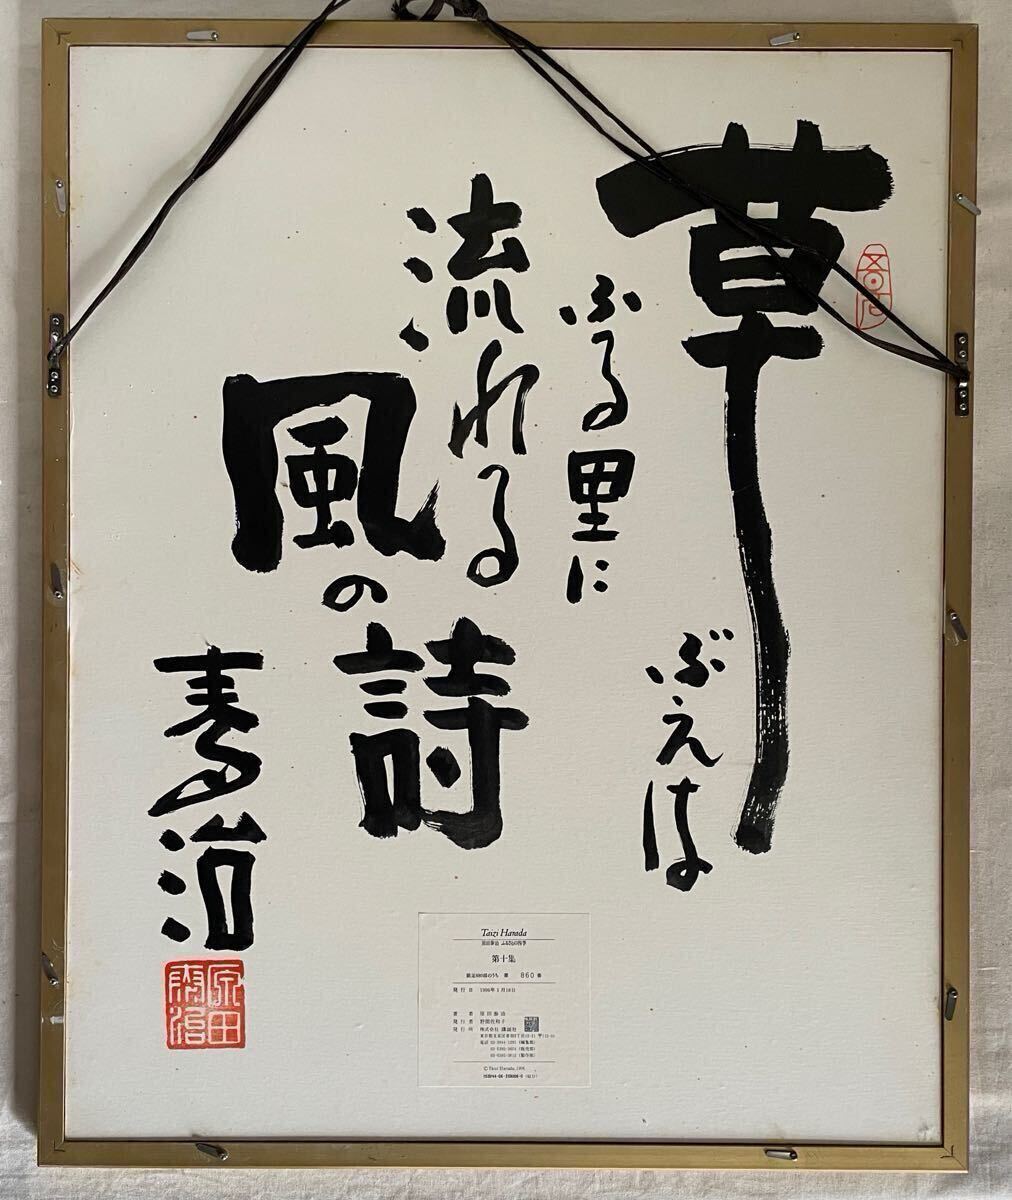 草
ぶえは
ふる里に
流れる
風の詩
泰治
原田泰治
Taizi Harada
原田泰治 ふるさとの四季
第十集
限定880部のうち 第 860 番
発行日 1996年1月18日
著者 原田泰治
発行者 野間佐和子
発行所 株式会社 講談社
© Taizi Harada, 1996